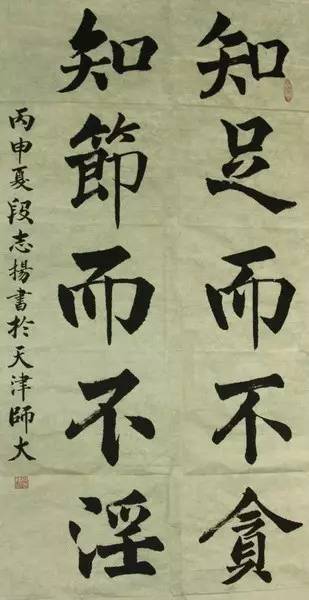 知足而不貪
知節而不淫
丙申夏段志揚書於天津師大